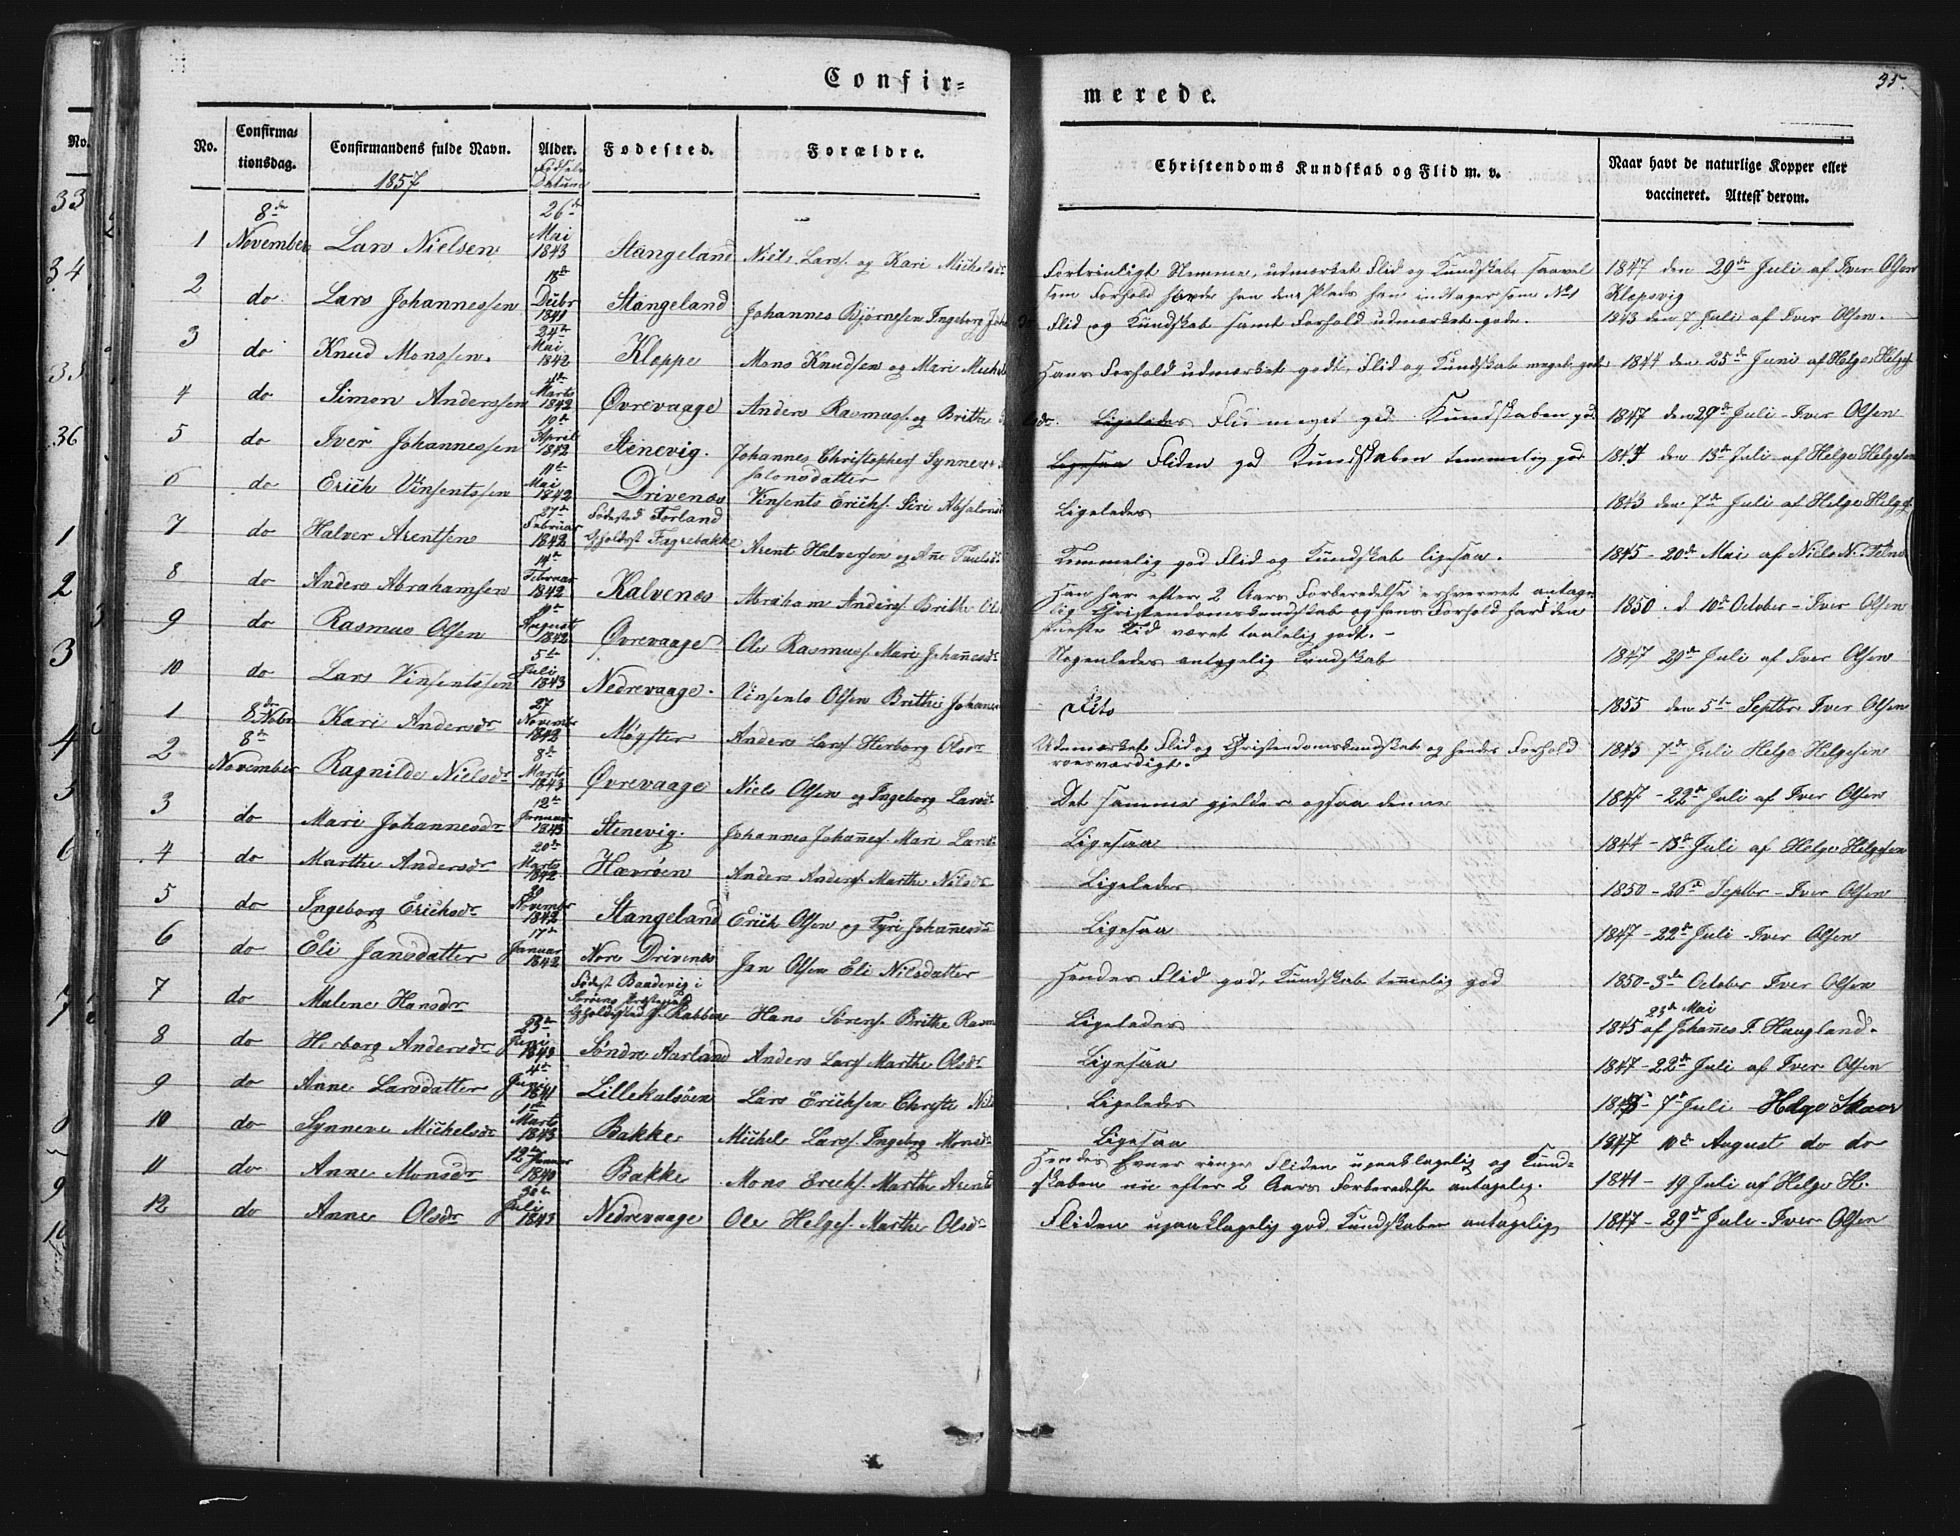 Confir=
merede.
35.
No.
Confirma=
tionsdag.
Confirmandens fulde Navn.
1857
Alder.
Fødsels
Datum
Fødested.
Forældre.
Christendoms Kundskab og Flid m. v.
Naar havt de naturlige Kopper eller
vaccineret. Attest derom.
No.
33
34
35
36
1
2
3
4
5
6
7
8
9
10
1 8de November Lars Nielsen 26de Mai 1843 Stangeland Niels Larss. og Kari Michelsdr
Fortrinligt Nemme, udmærket Flid og Kundskab saavel
som Forhold hævde ham den Plads han indtager som No 1
1847 den 29de Juli af Iver Olsen
Klepsvig
2 do Lars Johannessen 18de Decbr 1841 Stangeland Johannes Bjørnsen Ingeborg Joh
Flid og Kundskab samt Forhold udmærket gode.
1843 den 7 Juli af Iver Olsen.
3 do Knud Monssen. 24de Mai 1842 Kleppe Mons Knudsen og Mari Michels
Hans Forhold udmærket godt, Flid og Kundskab meget god
1844 den 25de Juni af Helge Helges.
4 do Simon Anderssen Marts 1842 Øvrevaage Anders Rasmuss. og Brithe
Ligeledes Flid meget god Kundskaben god
1847 den 29de Juli Iver Olsen
5 do Iver Johannessen 19de April 1842 Stenevig. Johannes Christophers. Synneve
Ligesaa Fliden god Kundskaben temmelig god
den 13de Juli af Helge Helgesen
6 do Erich Vinsentssen Mai 1842 Drivenes Vinsents Erichs. Siri Absalonsd
salonsdatter
Ligeledes
1843 den 7de Juli af Helge Helges.
7 do Halver Arentsen 27de Februar 1842 Fødested Forland
Opholdst Fagrebakke Arent Halversen og Ane Paulsd
Temmelig god Flid og Kundskab ligesaa.
1845 - 20de Mai af Niels N. Telnæs
8 do Anders Abrahamsen 14de Februar 1842 Kalvenes Abraham Anders. Brithe Ols
Han har efter 2 Aars Forberedelse erhvervet antage
lig Christendomskundskab og hans Forhold har i den
seneste Tid været taalelig godt. -
1850 . d 10de October - Iver Olsen
9 do Rasmus Olsen August 1842 Øvrevaage Ole Rasmuss. Mari Johanesdr
Nogenledes antagelig Kundskab
1847 29de Juli af Iver Olsen
10 do Lars Vinsentssen 5te Juli 1843 Nedrevaage. Vinsents Olsen Brithe Johanes
Dito
1855 den 5te Septbr Iver Olsen
1 8de Nobr Kari Andersdr 27 Novembr 1842 Møgster Anders Larss. Herborg Olsdr
Udmærket Flid og Christendomskundskab og hendes Forhold
roesværdigt.
1843 7de Juli Helge Helgesen
2 8de November Ragnilde Nielsdr 8de Marts 1843 Øvrevaage Niels Olsen og Ingeborg Larsdr
Det samme gjelder ogsaa denne
1847 - 22de Juli af Iver Olsen
3 do Mari Johannesdr 12te Januar 1843 Stenevig. Johannes Johaness. Mari Larsdr
Ligesaa
1844 - 13de Juli af Helge Helgesen
4 do Marthe Andersdr 20de Marts 1842 Hevrøen Anders Anders. Marthe Nilsdr
Ligeledes
1850 - 26de Septbr - Iver Olsen
5 do Ingeborg Ericksdr Novembr 1842 Stangeland Erich Olsen og Tyri Johanesdr
Ligesaa
1847 - 22de Juli Iver Olsen
6 do Eli Jansdatter 17de Januar 1842 Nore Drivenes Jan Olsen Eli Nilsdatter
Hendes Flid god, Kundskab temelig god
1850 - 3de October Iver Olsen
7 do Malene Hansdr Fødest Baadevig i
Opholdssted p. Rabben Hans Sørens. Brithe Rasm
Ligeledes
23de Mai
1845 af Johannes T. Haugland.
8 do Herborg Andersdr 23de Juni 1843 Søndre Aarland Anders Larss. Marthe Olsdr
Ligesaa
1847 - 22de Juli af Iver Olsen
9 do Anne Larsdatter 4de Juni 1841 Lillekalsøen Lars Erichsen Christi Nils
Ligeledes
7de Juli Helge Skaar
10 do Synneve Michelsdr 1te Marts 1843 Bakke Michel Larss. Ingeborg Monsdr
Ligesaa
1847 10de August do do
11 do Anne Monsdr 12te Januar 1840 Bakke Mons Erichs. Marthe Arentsd
Hendes Evner ringe Fliden upaaklagelig og Kund=
skaben nu efter 2 Aars Forberedelse antagelig.
1841 - 19 Juli af Helge H.
12 do Anne Olsdr Juli 1843 Nedrevaage Ole Helges. Marthe Olsdr
Fliden upaaklagelig god, Kundskaben antagelig
1847 - 29de Juli - Iver Olsen